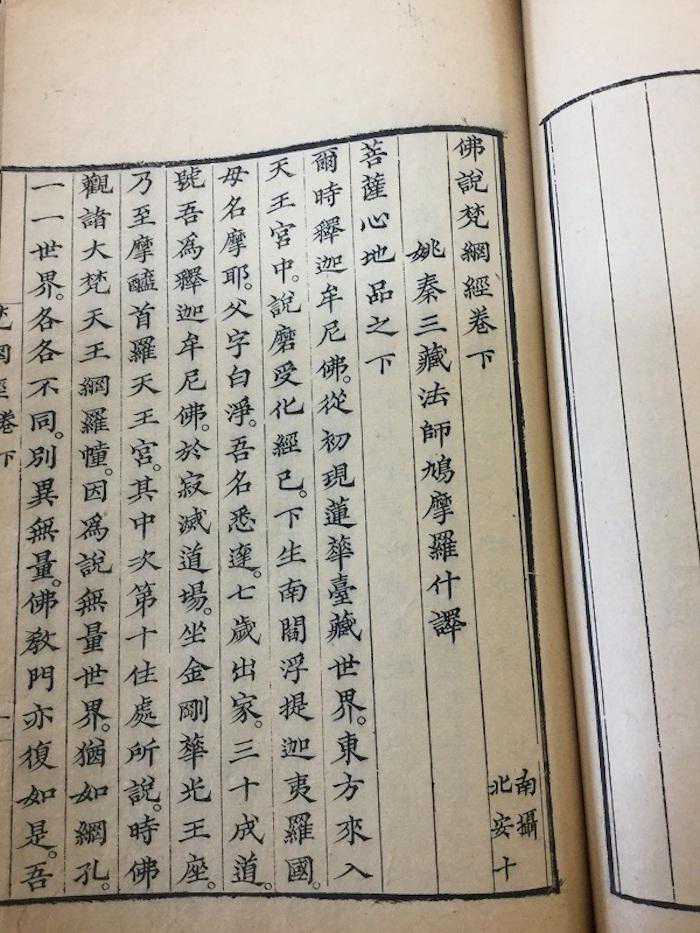 佛說梵網經卷下
南攝
北安十
姚秦三藏法師鳩摩羅什譯
菩薩心地品之下
爾時釋迦牟尼佛。從初現蓮華臺藏世界。東方來入
天王宮中。說磨受化經已。下生南閻浮提迦夷羅國。
母名摩耶。父字白淨。吾名悉達。七歲出家。三十成道。
號吾爲釋迦牟尼佛。於寂滅道場。坐金剛華光王座。
乃至摩醯首羅天王宮。其中次第十住處所說。時佛
觀諸大梵天王網羅幢。因爲說無量世界。猶如網孔。
一一世界。各各不同。別異無量。佛教門亦復如是。吾
梵網經卷下